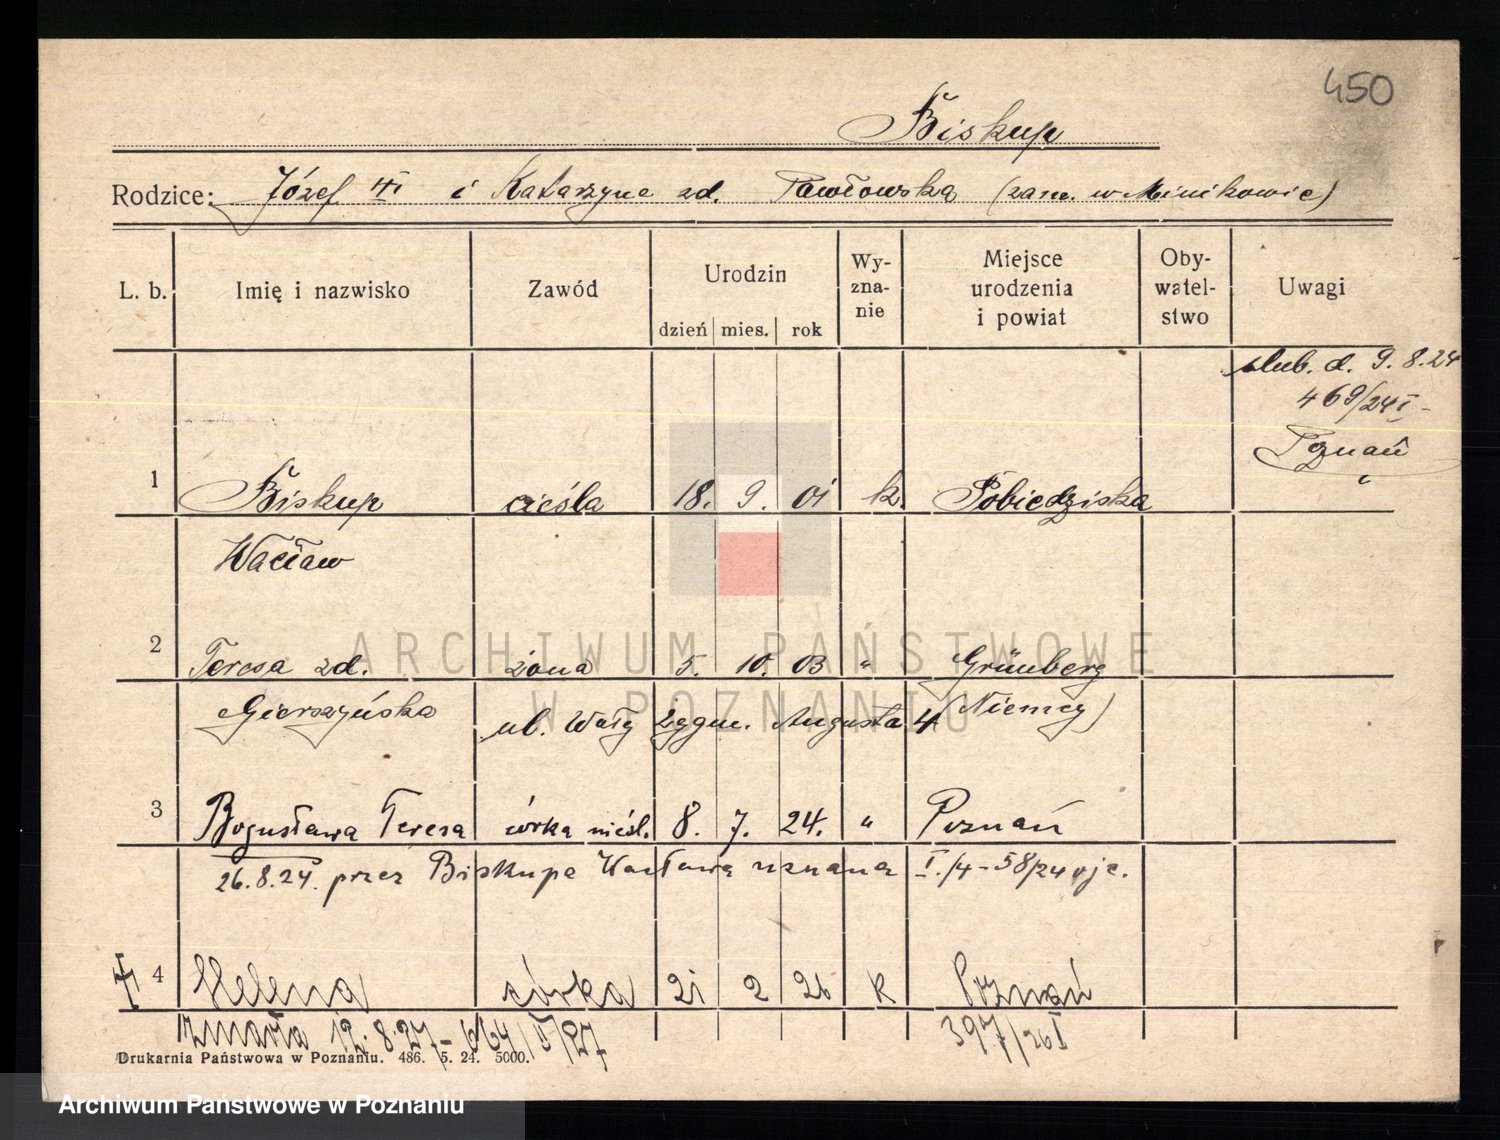 450
Biskup
Rodzice: Józef III i Katarzyna zd. Pawłowska (zam. w Minikowie)
L. b. Imię i nazwisko Zawód Urodzin dzień mies. rok Wy-zna-nie Miejsce urodzenia i powiat Oby-watel-stwo Uwagi
ślub. d. 9.8.24
469/24 I
Poznań
1 Biskup cieśla 18. 9. 01 k. Pobiedziska
Wacław
2 Teresa zd. żona 5. 10. 03 " Grünberg
Gierszyńska ul. Wały Zygm. Augusta 4 (Niemcy)
3 Bogusława Teresa córka nieśl. 8. 7. 24. " Poznań
26.8.24. przez Biskupa Wacława uznana I./4-58/24 ojc.
4 Helena córka 21 2 26 k Poznań
zmarła 12.8.27 - 664/II/27 397/26 I
Drukarnia Państwowa w Poznaniu. 486. 5. 24. 5000.
ARCHIWUM PAŃSTWOWE
W POZNANIU
Archiwum Państwowe w Poznaniu